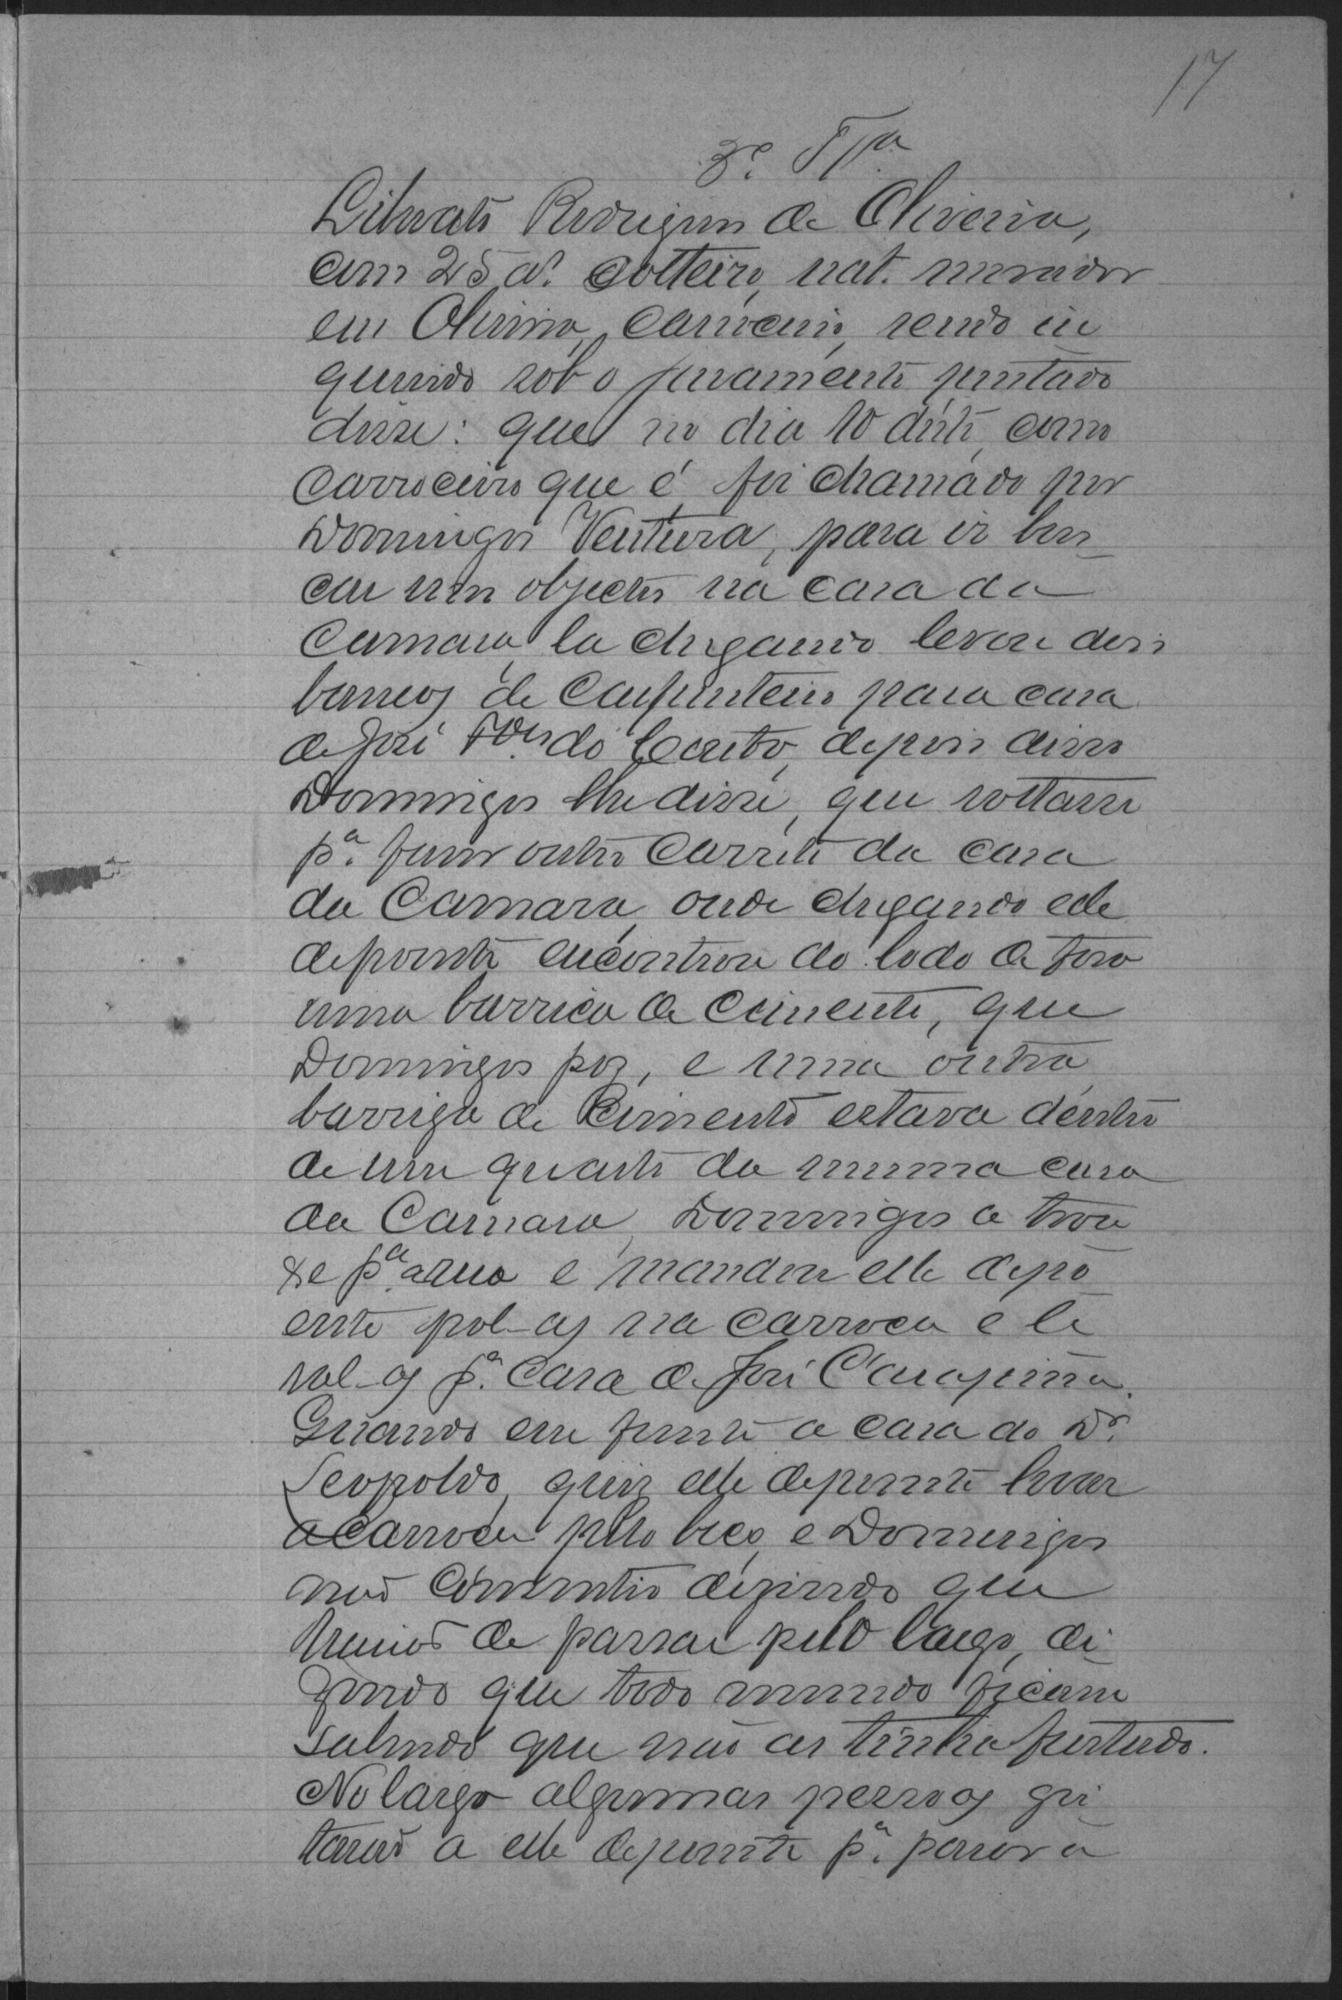 17
3ª Tta
Liberato Rodrigues de Oliveira,
com 25 aº. solteiro, nat. morador
em Oliveira, carroceiro, sendo in
querido sob o juramento prestado
disse: que no dia 10 deste, como
carroceiro que é, foi chamado por
Domingos Ventura, para ir bus_
car uns objectos na casa da
Camara, la chegando levou dois
bancos de Carpinteiro para casa
de José do Couto, depois disso
Domingos lhe disse, que voltasse
pª. fazer outro carreto da casa
da Camara, onde chegando elle
depoente encontrou do lado de fora
uma barrica de cimento, que
Domingos poz, e uma outra
barriga de Cimento estava dentro
de um quarto da mesma casa
da Camara, Domingos a trou
xe pª. a rua e mandou elle depo
ente pol-as na carroça e le
val-as pª. casa de José Carapina.
Quando em frente a casa do Dr.
Leopoldo, quiz elle depoente levar
a carroça pelo beco, e Domingos
não consentio dizendo que
haviaõ de passar pelo largo, di
zendo que todo mundo ficasse
sabendo que não as tinha furtado.
No largo algumas pessoas gri
tarão a elle depoente pª. parar a